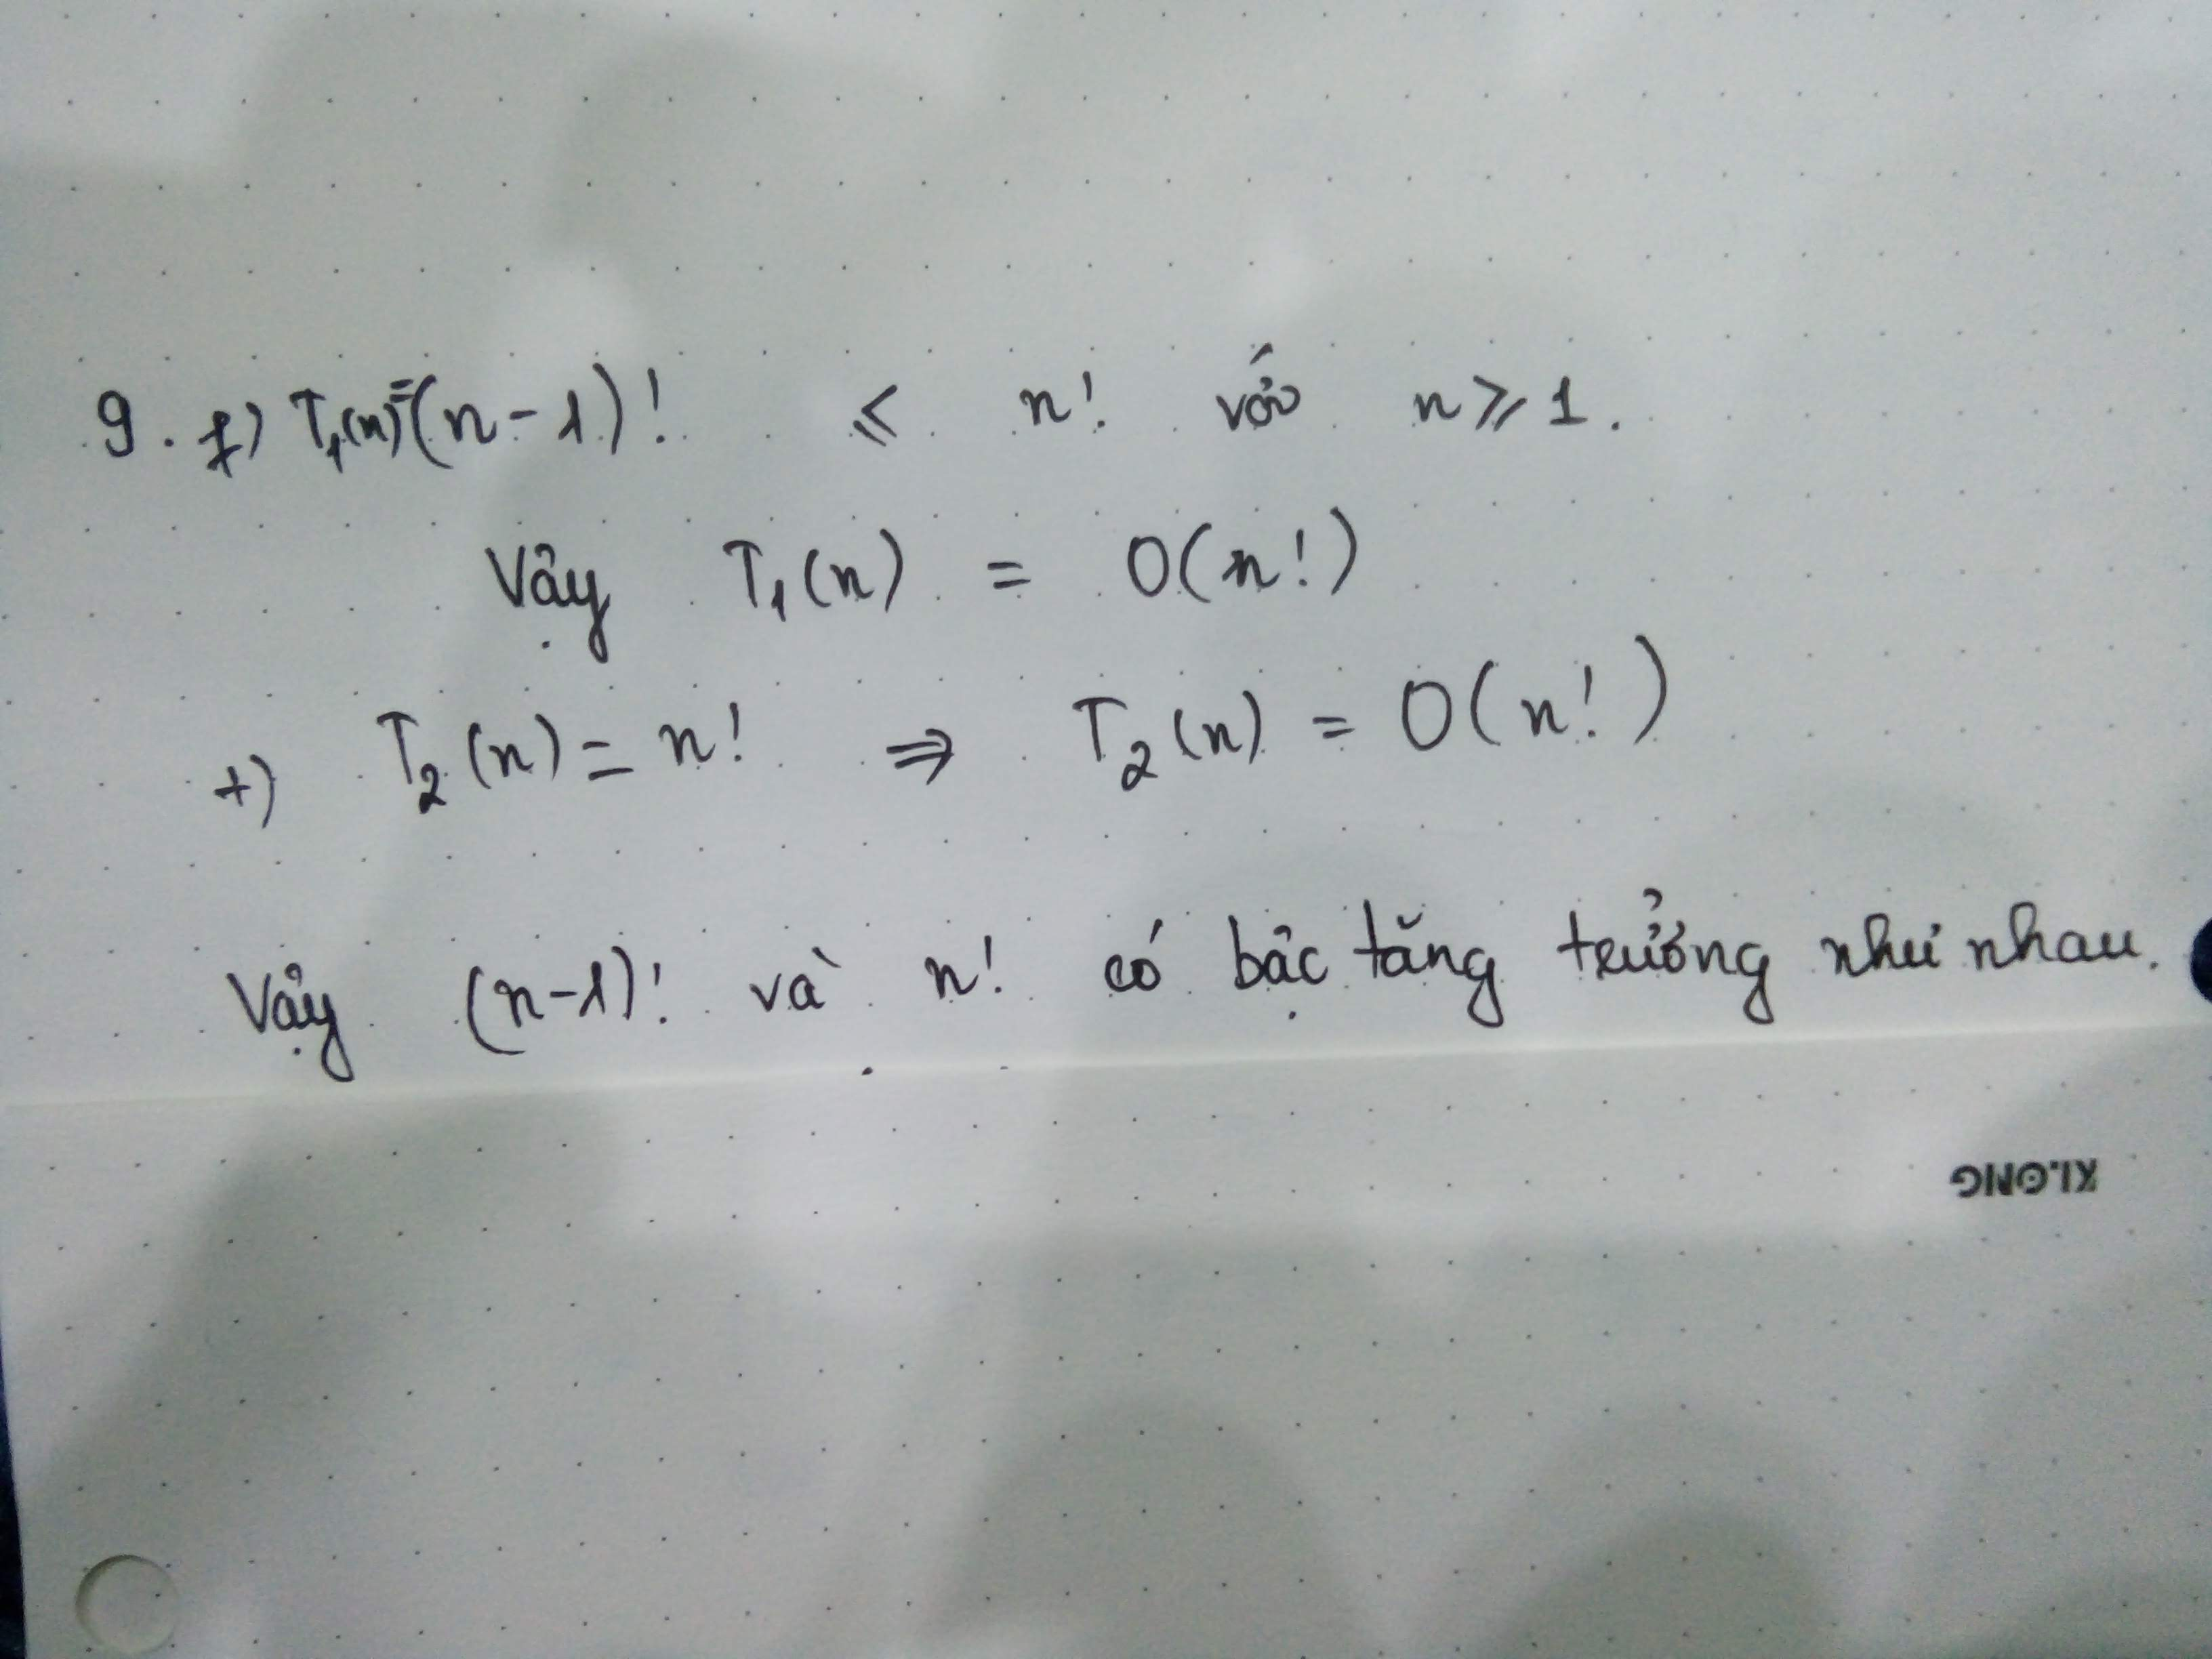 9. f) T₁(n)=(n-1)! ≤ n! với n ≥ 1.
Vậy T₁(n) = O(n!)
+) T₂(n) = n! ⇒ T₂(n) = O(n!)
Vậy (n-1)! và n! có bậc tăng trưởng như nhau.
KLONG